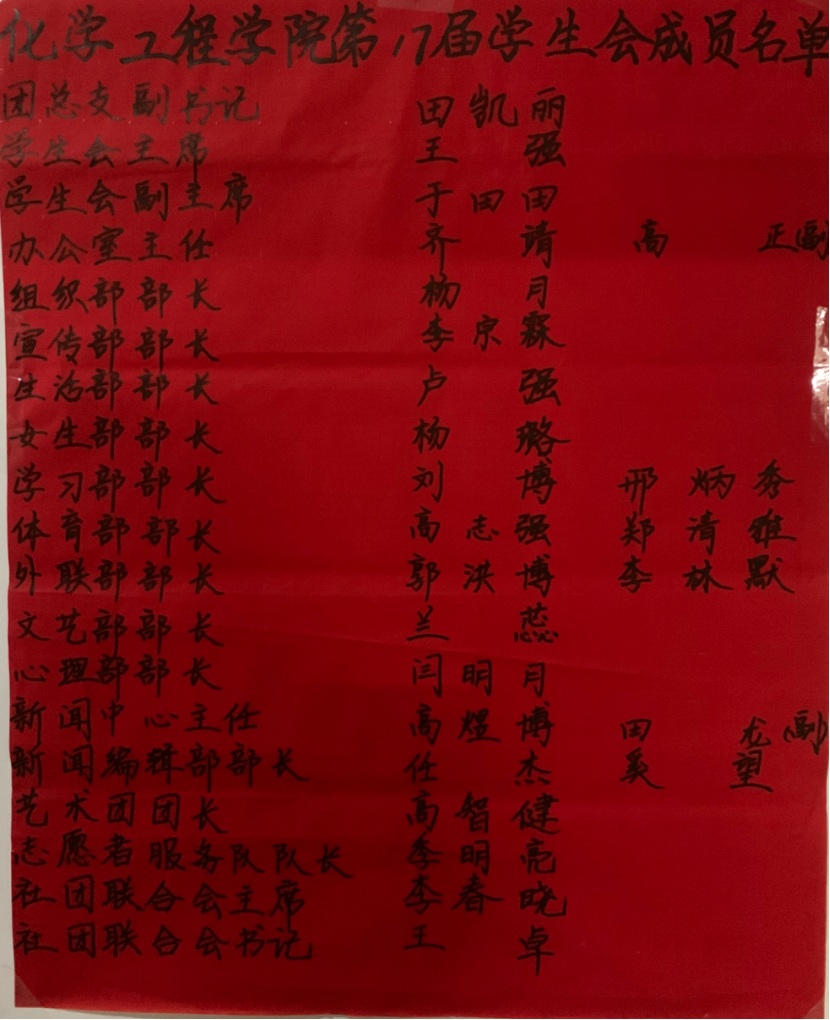 化学工程学院第17届学生会成员名单
团总支副书记 田凯丽
学生会主席 王强
学生会副主席 于田田
办公室主任 齐靖 高正副
组织部部长 杨月
宣传部部长 李京霖
生活部部长 卢强
女生部部长 杨璐
学习部部长 刘博 邢炳秀
体育部部长 高志强 郑清雅
外联部部长 郭洪博 李林默
文艺部部长 兰蕊
心理部部长 闫明月
新闻中心主任 高煜博 田龙(副)
新闻编辑部部长 任杰 奚望
艺术团团长 高智健
志愿者服务队队长 李明亮
社团联合会主席 李春晓
社团联合会书记 王卓